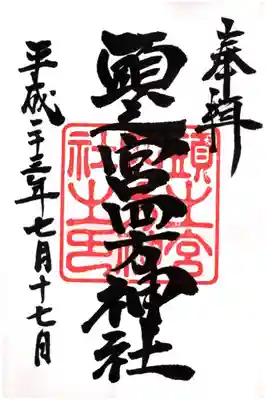 奉拝
頭之宮四方神社
平成二十三年七月十七日
頭之宮
社之印